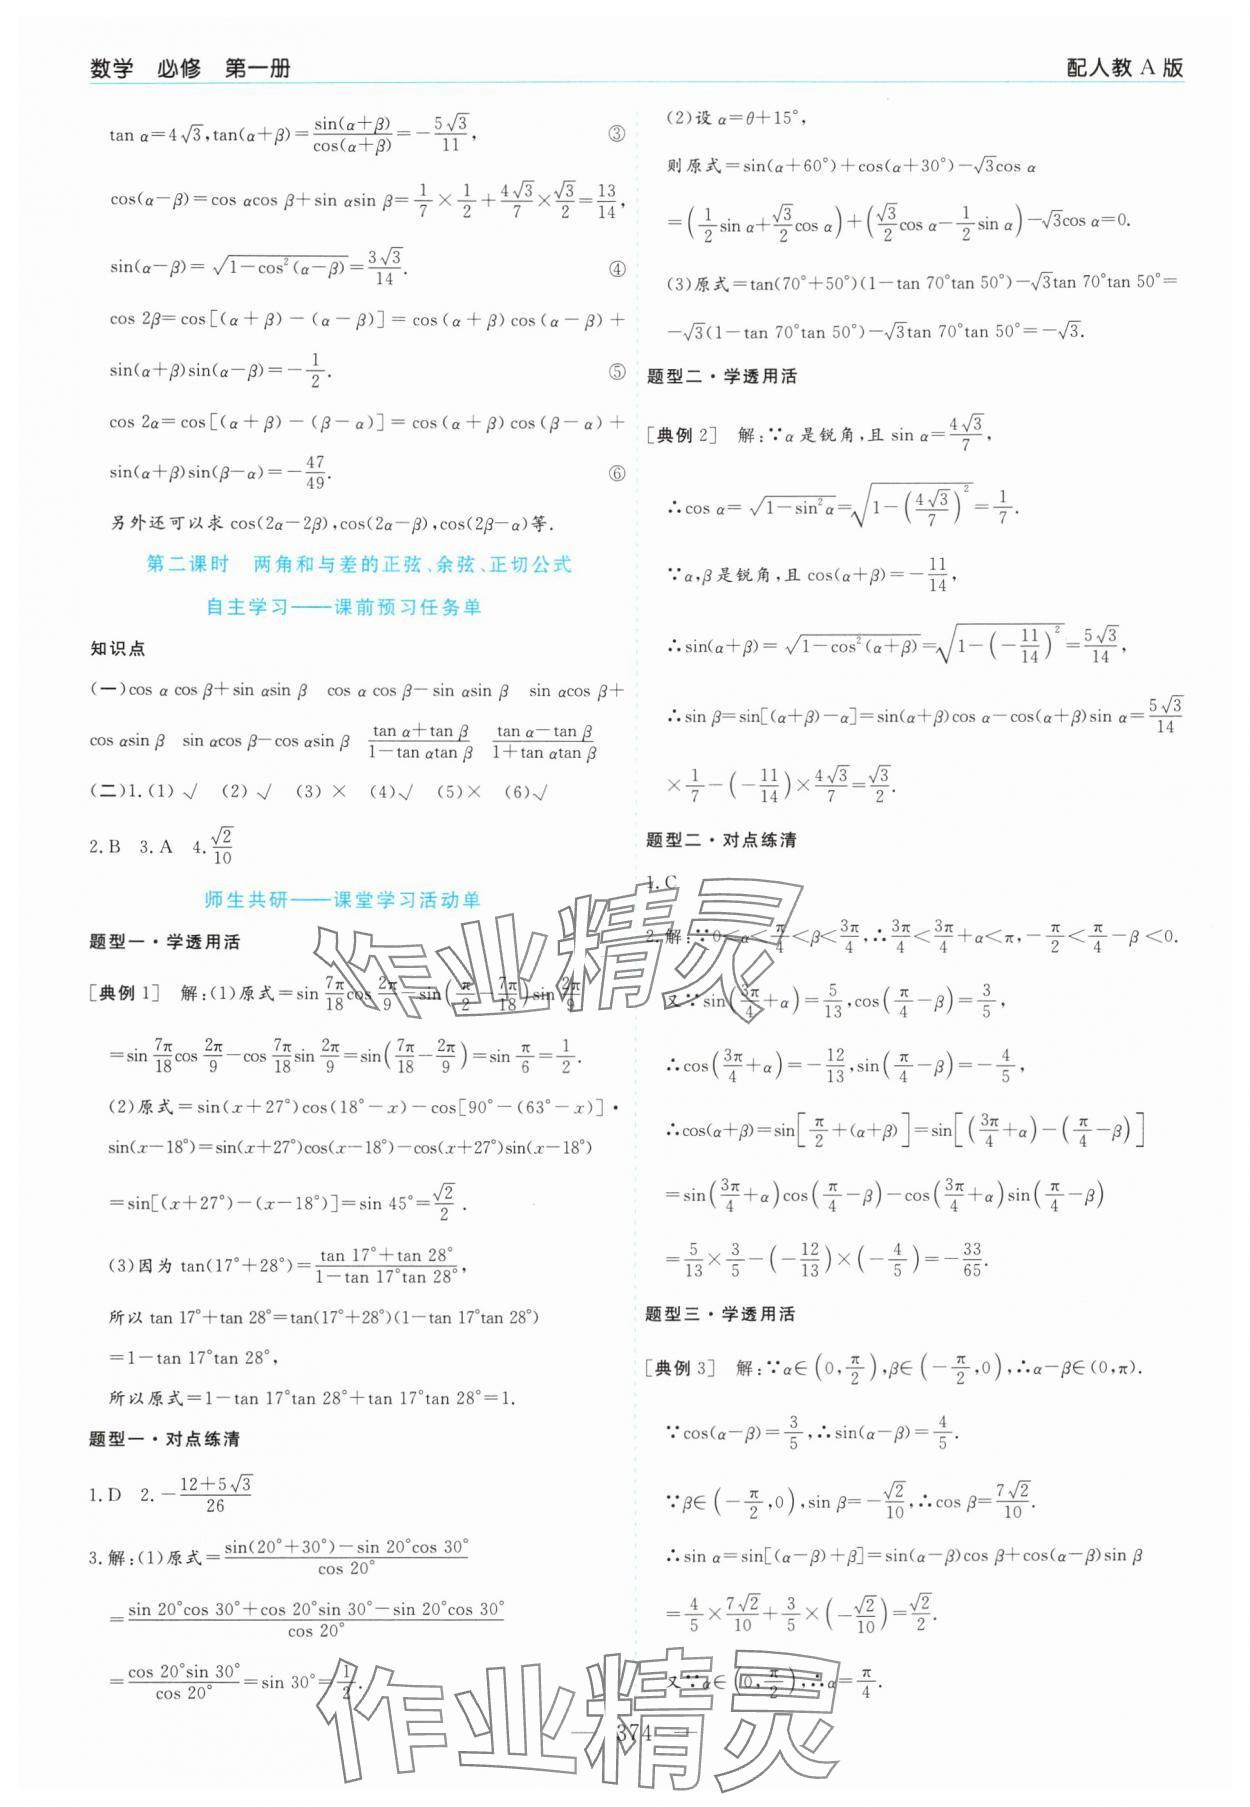 数学 必修 第一册
配人教 A 版
tan α=4√3,tan(α+β)=sin(α+β)/cos(α+β)=-5√3/11, ③
cos(α-β)=cos αcos β+sin αsin β=1/7×1/2+4√3/7×√3/2=13/14,
sin(α-β)=√(1-cos²(α-β))=3√3/14. ④
cos 2β=cos[(α+β)-(α-β)]=cos(α+β)cos(α-β)+
sin(α+β)sin(α-β)=-1/2. ⑤
cos 2α=cos[(α+β)-(β-α)]=cos(α+β)cos(β-α)+
sin(α+β)sin(β-α)=-47/49. ⑥
另外还可以求 cos(2α-2β),cos(2α-β),cos(2β-α)等.
第二课时 两角和与差的正弦、余弦、正切公式
自主学习——课前预习任务单
知识点
(一)cos α cos β+sin αsin β cos α cos β-sin αsin β sin αcos β+
cos αsin β sin αcos β-cos αsin β (tan α+tan β)/(1-tan αtan β) (tan α-tan β)/(1+tan αtan β)
(二)1.(1)√ (2)√ (3)× (4)√ (5)× (6)√
2.B 3.A 4.√2/10
师生共研——课堂学习活动单
题型一·学透用活
[典例1] 解:(1)原式=sin 7π/18 cos 2π/9-sin(π/2-7π/18)sin 2π/9
=sin 7π/18 cos 2π/9-cos 7π/18 sin 2π/9=sin(7π/18-2π/9)=sin π/6=1/2.
(2)原式=sin(x+27°)cos(18°-x)-cos[90°-(63°-x)]·
sin(x-18°)=sin(x+27°)cos(x-18°)-cos(x+27°)sin(x-18°)
=sin[(x+27°)-(x-18°)]=sin 45°=√2/2.
(3)因为 tan(17°+28°)=(tan 17°+tan 28°)/(1-tan 17°tan 28°),
所以 tan 17°+tan 28°=tan(17°+28°)(1-tan 17°tan 28°)
=1-tan 17°tan 28°,
所以原式=1-tan 17°tan 28°+tan 17°tan 28°=1.
题型一·对点练清
1.D 2.-(12+5√3)/26
3.解:(1)原式=(sin(20°+30°)-sin 20°cos 30°)/cos 20°
=(sin 20°cos 30°+cos 20°sin 30°-sin 20°cos 30°)/cos 20°
=(cos 20°sin 30°)/cos 20°=sin 30°=1/2.
(2)设 α=θ+15°,
则原式=sin(α+60°)+cos(α+30°)-√3cos α
=(1/2 sin α+√3/2 cos α)+(√3/2 cos α-1/2 sin α)-√3cos α=0.
(3)原式=tan(70°+50°)(1-tan 70°tan 50°)-√3tan 70°tan 50°=
-√3(1-tan 70°tan 50°)-√3tan 70°tan 50°=-√3.
题型二·学透用活
[典例2] 解:∵α是锐角,且 sin α=4√3/7,
∴cos α=√(1-sin²α)=√(1-(4√3/7)²)=1/7.
∵α,β是锐角,且 cos(α+β)=-11/14,
∴sin(α+β)=√(1-cos²(α+β))=√(1-(-11/14)²)=5√3/14,
∴sin β=sin[(α+β)-α]=sin(α+β)cos α-cos(α+β)sin α=5√3/14
×1/7-(-11/14)×4√3/7=√3/2.
题型二·对点练清
1.C
2.解:∵0<α<π/4<β<3π/4,∴3π/4<3π/4+α<π,-π/2<π/4-β<0.
又∵sin(3π/4+α)=5/13,cos(π/4-β)=3/5,
∴cos(3π/4+α)=-12/13,sin(π/4-β)=-4/5,
∴cos(α+β)=sin[π/2+(α+β)]=sin[(3π/4+α)-(π/4-β)]
=sin(3π/4+α)cos(π/4-β)-cos(3π/4+α)sin(π/4-β)
=5/13×3/5-(-12/13)×(-4/5)=-33/65.
题型三·学透用活
[典例3] 解:∵α∈(0,π/2),β∈(-π/2,0),∴α-β∈(0,π).
∵cos(α-β)=3/5,∴sin(α-β)=4/5.
∵β∈(-π/2,0),sin β=-√2/10,∴cos β=7√2/10.
∴sin α=sin[(α-β)+β]=sin(α-β)cos β+cos(α-β)sin β
=4/5×7√2/10+3/5×(-√2/10)=√2/2.
又∵α∈(0,π/2),∴α=π/4.
— 374 —
作业精灵
作业精灵